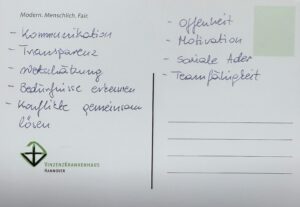 Modern. Menschlich. Fair.
- Kommunikation
- Transparenz
- Wertschätzung
- Bedürfnisse erkennen
- Konflikte gemeinsam
lösen
VINZENZKRANKENHAUS
HANNOVER
- Offenheit
- Motivation
- Soziale Ader
- Teamfähigkeit